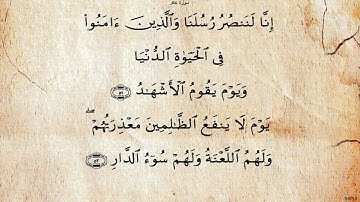 سورة غافر
إِنَّا لَنَنصُرُ رُسُلَنَا وَٱلَّذِينَ ءَامَنُوا۟
فِى ٱلْحَيَوٰةِ ٱلدُّنْيَا
وَيَوْمَ يَقُومُ ٱلْأَشْهَـٰدُ ٥١
يَوْمَ لَا يَنفَعُ ٱلظَّـٰلِمِينَ مَعْذِرَتُهُمْ ۖ
وَلَهُمُ ٱللَّعْنَةُ وَلَهُمْ سُوٓءُ ٱلدَّارِ ٥٢